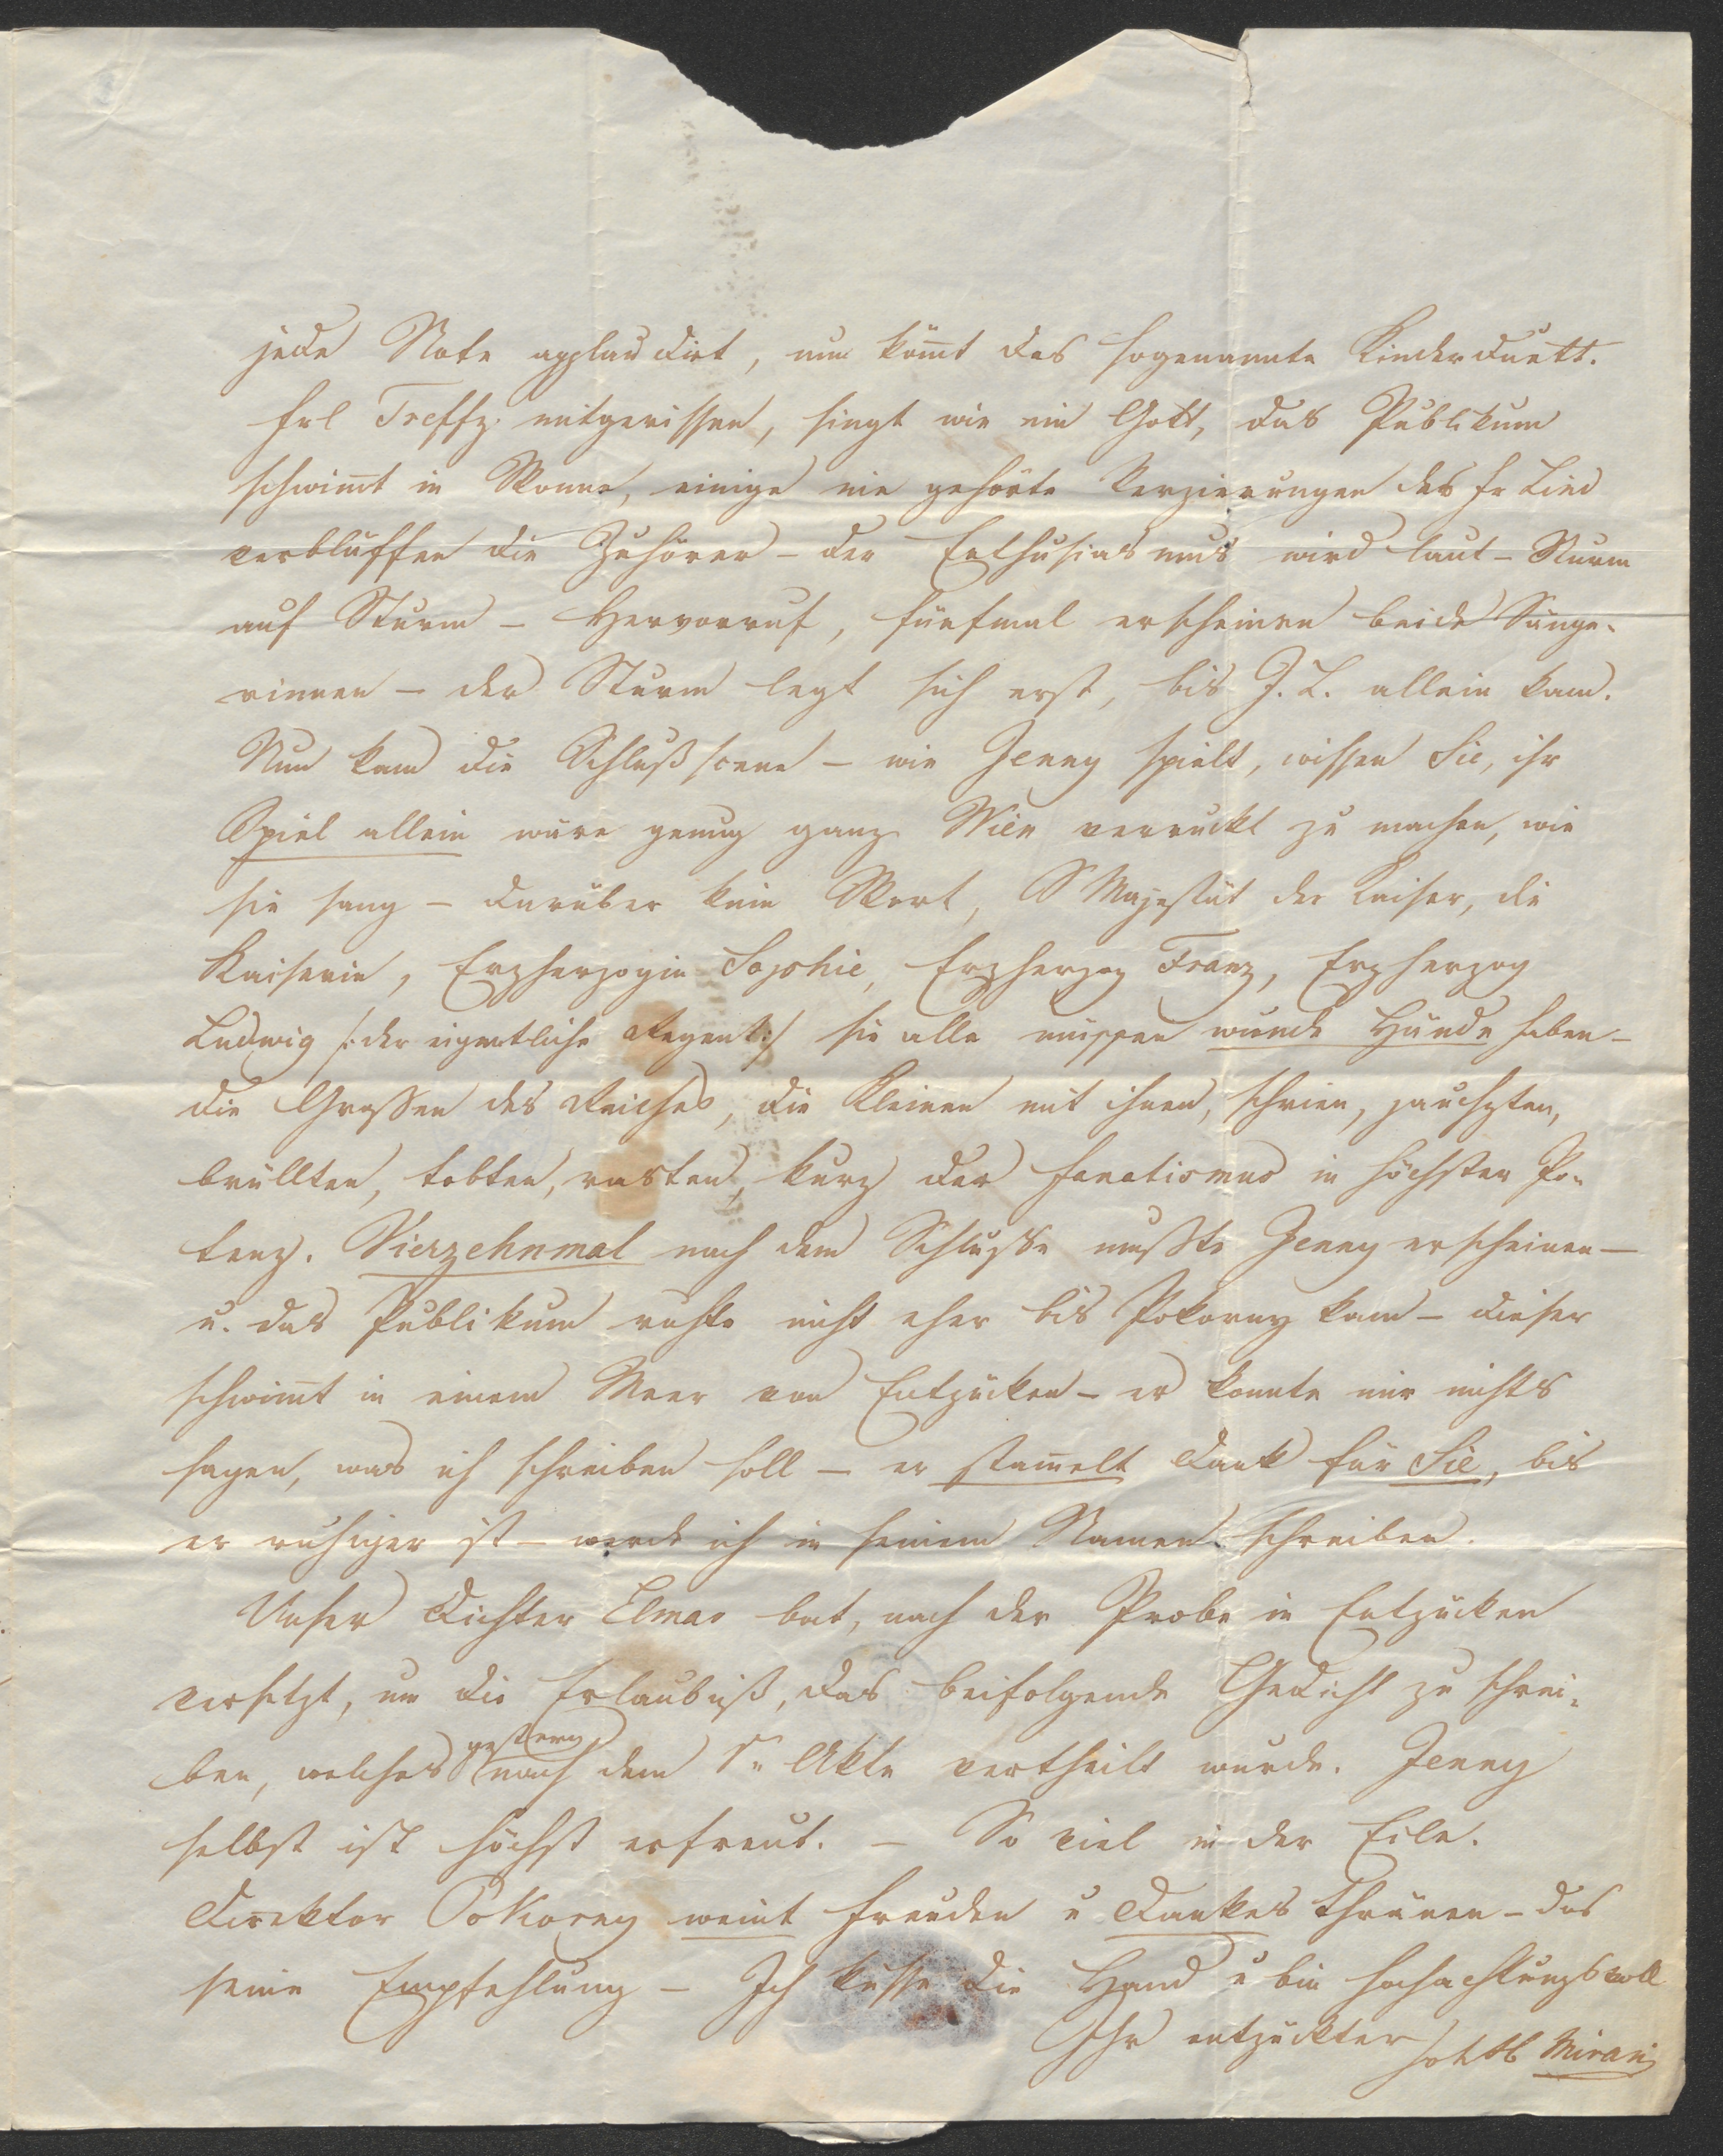 jede Note applaudirt, nun kom̄t das sogenannte Kinderduett.
Frl Treffz. mitgerissen, singt wie ein Gott, das Publikum
schwim̄t in Wonne, einige nie gehörte Verzierungen des Fr Lind
verblüffen die Zuhörer – der Enthusiasmus wird laut – Sturm
auf Sturm – Hervorruf, fünfmal erscheinen beide Sänge-
rinnen – der Sturm legt sich erst, bis J. L. allein kam.
Nun kam die Schlußscene – wie Jenny spielt, wissen Sie, ihr
Spiel allein wäre genug ganz Wien verrückt zu machen, wie
sie sang – darüber kein Wort, S Majestät der Kaiser, die
Kaiserin, Erzherzogin Sophie, Erzherzog Franz, Erzherzog
Ludwig /: der eigentliche Regent :/ sie alle müssen wunde Hände haben –
die Grossen des Reiches, die Kleinen mit ihnen, schrien, jauchzten,
brüllten, tobten, rasten, kurz der Fanatismus in höchster Po-
tenz. Vierzehnmal nach dem Schlusse mußte Jenny erscheinen –
u. das Publikum ruhte nicht eher bis Pokorny kam – dieser
schwim̄t in einem Meer von Entzücken – er konnte mir nichts
sagen, was ich schreiben soll – er stam̄elt Dank für Sie, bis
er ruhiger ist – werde ich in seinem Namen schreiben.
Unser Dichter Elmar bat, nach der Probe in Entzücken
versetzt, um die Erlaubniß, das beifolgende Gedicht zu schrei-
ben, welches gestern nach dem 1n Akte vertheilt wurde. Jenny
selbst ist höchst erfreut. – So viel in der Eile.
Direktor Pokorny weint Freuden u Dankes Thränen – das
seine Empfehlung – Ich küsse die Hand u bin hochachtungsvoll
Ihr entzückter Mirani